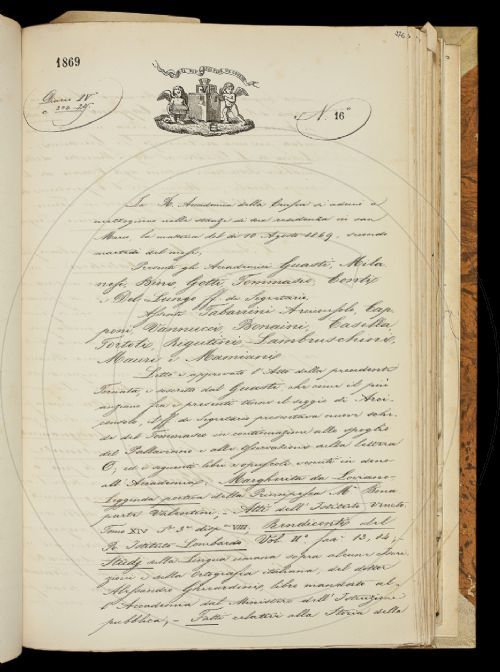 276
1869
Diario IV
c
N. 16°
La R. Accademia della Crusca si adunò a
mezzogiorno nelle stanze di sua residenza in san
Marco, la mattina del dì 10 Agosto 1869, secondo
martedì del mese,
Presenti gli Accademici Guasti, Mila
nesi, Bini, Gotti, Tommaseo, Conti
e Del-Lungo ff. di Segretario.
Assenti Tabarrini Arciconsolo, Cap
poni, Vannucci, Bonaini, Casella
Tortoli, Rigutini, Lambruschini,
Mauri e Mamiani.
Letto e approvato l'Atto della precedente
Tornata, e discreto dal Guasti che come il più
anziano fra i presenti tenne il seggio di Arci
consolo, il ff. di Segretario presentava nuove schede
del Tommaseo in continuazione allo spoglio
del Pallavicino e alle Osservazioni alla lettera
C, ed i seguenti libri e opuscoli venuti in dono
all'Accademia, Margherita da Loviano
Leggenda poetica della Principessa Mª Bona
parte Valentini, - Atti dell'Istituto Veneto
Tomo XIV Sª 3ª disp. VIII, Rendiconti del
R. Istituto Lombardo Vol. IIº fasc. 13, 14,
Studj sulla Lingua umana sopra alcune Inscri
zioni e sulla Ortografia italiana, del dottor
Alessandro Gherardini, libro mandato al
l'Accademia dal Ministro dell'Istruzione
pubblica, - Fatti relativi alla Storia della